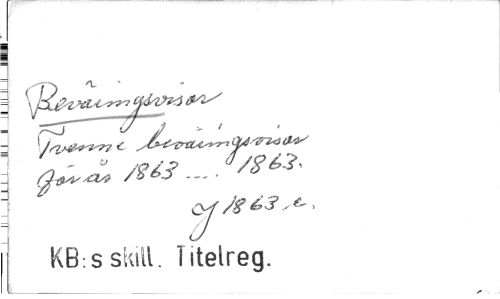 Beväringsvisor
Tvenne beväringsvisor
för år 1863 .... 1863.
J 1863 c.
KB:s skill. Titelreg.